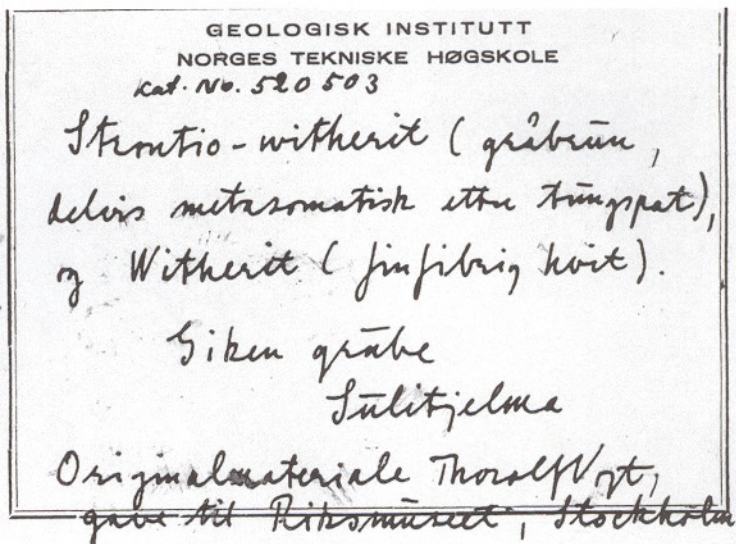 GEOLOGISK INSTITUTT
NORGES TEKNISKE HØGSKOLE
Kat. No. 520503
Strontio-witherit (gråbrun,
delvis metasomatisk etter tungspat),
og Witherit (finfibrig hvit).
Giken grube
Sulitjelma
Originalmateriale Thorolf Vogt,
gave til Riksmuseet, Stockholm